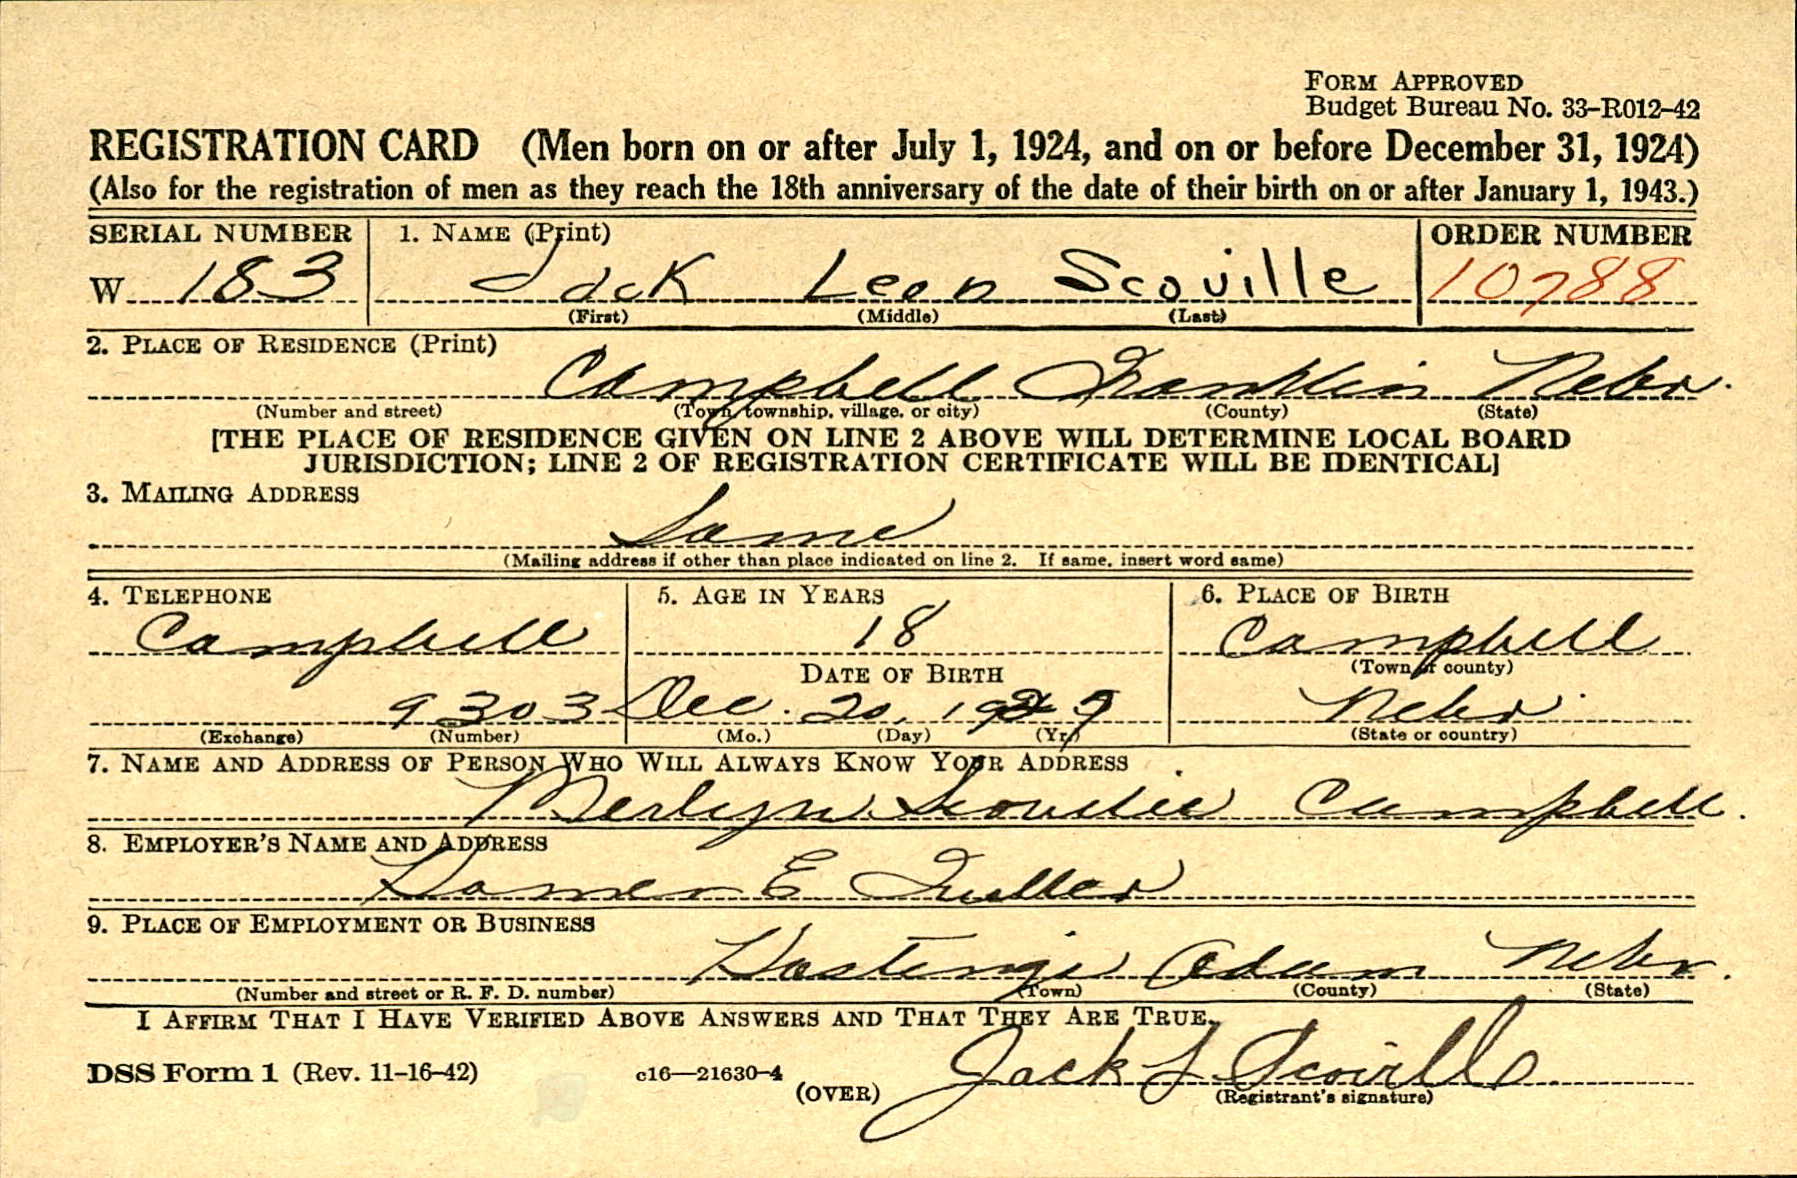 FORM APPROVED
Budget Bureau No. 33–R012–42
REGISTRATION CARD (Men born on or after July 1, 1924, and on or before December 31, 1924)
(Also for the registration of men as they reach the 18th anniversary of the date of their birth on or after January 1, 1943.)
SERIAL NUMBER 1. NAME (Print) ORDER NUMBER
W 183 Jack Leon Scoville 10788
(First) (Middle) (Last)
2. PLACE OF RESIDENCE (Print)
Campbell Franklin Nebr.
(Number and street) (Town, township, village, or city) (County) (State)
[THE PLACE OF RESIDENCE GIVEN ON LINE 2 ABOVE WILL DETERMINE LOCAL BOARD
JURISDICTION; LINE 2 OF REGISTRATION CERTIFICATE WILL BE IDENTICAL]
3. MAILING ADDRESS
Same
(Mailing address if other than place indicated on line 2. If same, insert word same)
4. TELEPHONE 5. AGE IN YEARS 6. PLACE OF BIRTH
Campbell 18 Campbell
DATE OF BIRTH (Town or county)
9303 Dec. 20, Nebr
(Exchange) (Number) (Mo.) (Day) (Yr.) (State or country)
7. NAME AND ADDRESS OF PERSON WHO WILL ALWAYS KNOW YOUR ADDRESS
Merlyn Scoville Campbell.
8. EMPLOYER'S NAME AND ADDRESS
Homer E
9. PLACE OF EMPLOYMENT OR BUSINESS
Hastings Adam Nebr.
(Number and street or R. F. D. number) (Town) (County) (State)
I AFFIRM THAT I HAVE VERIFIED ABOVE ANSWERS AND THAT THEY ARE TRUE.
DSS Form 1 (Rev. 11–16–42) c16—21630–4 (OVER) Jack L Scoville
(Registrant's signature)